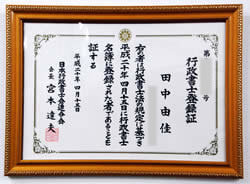 行政書士登録証
第 号
田中由佳
右の者は行政書士法の規定に基づき
平成二十年四月十五日に行政書士
名簿に登録された者であることを
証する
平成二十年四月十五日
日本行政書士会連合会
会長 宮本達夫